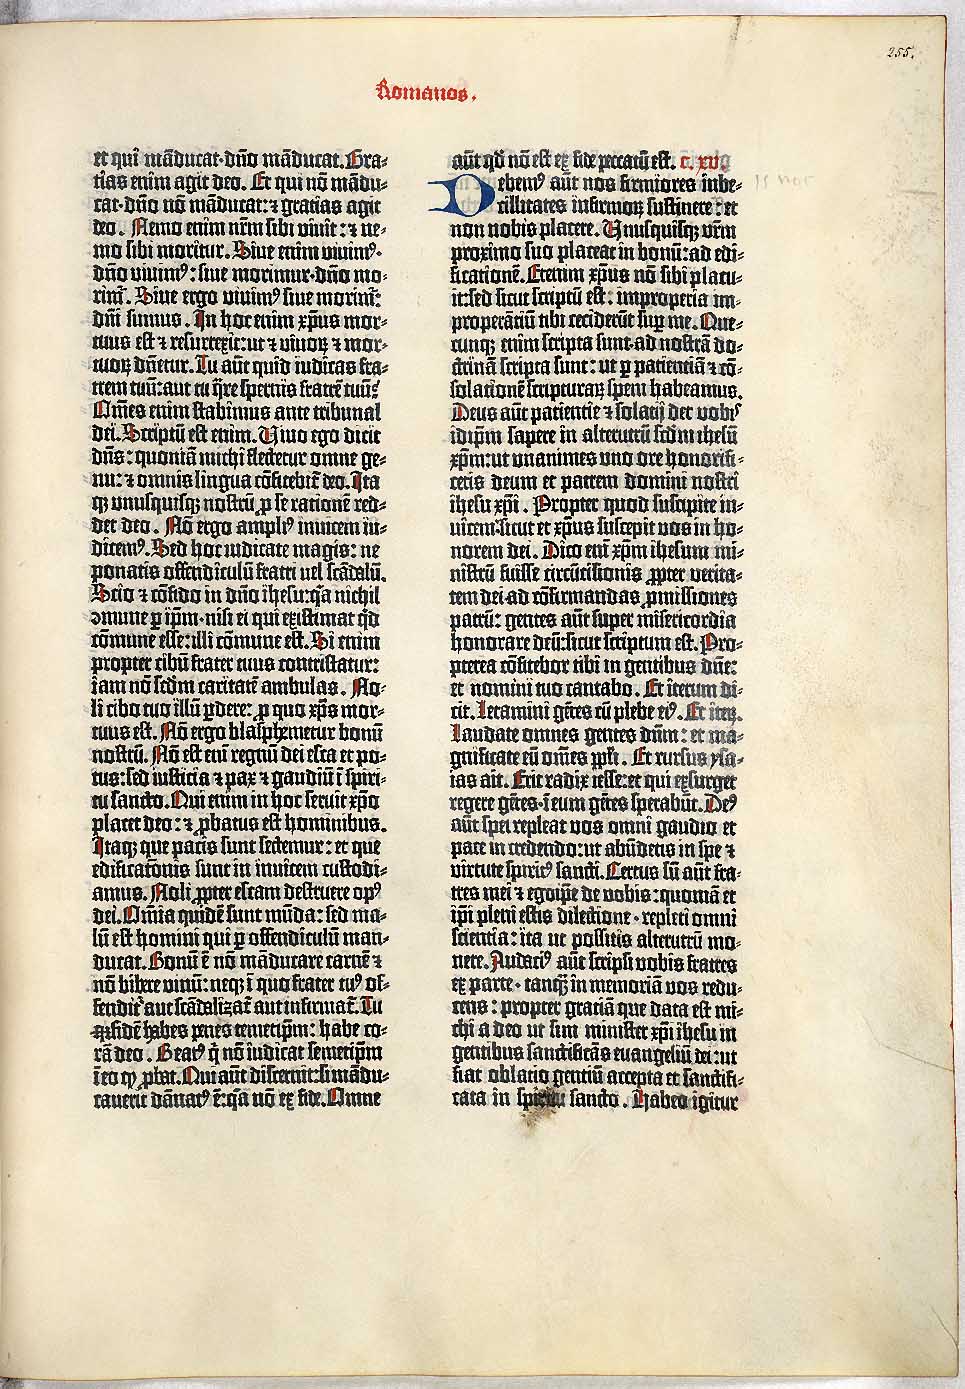 255.
Romanos.
et qui mãducat·dño mãducat. Gra-
tias enim agit deo. Et qui nõ mãdu-
cat·dño nõ mãducat: ⁊ gratias agit
deo. Nemo enim nr̃m sibi vivit: ⁊ ne-
mo sibi moritur. Siue enim viuimꝰ·
dño viuimꝰ: siue morimur·dño mo-
rim̃. Siue ergo viuimꝰ siue morim̃:
dñi sumus. In hoc enim xp̃us mor-
tuus est ⁊ resurrexit: ut ⁊ viuoꝝ ⁊ mor-
tuoꝝ dñetur. Tu aũt quid iudicas fra-
trem tuũ: aut tu q̃re spernis fratrẽ tuũ?
Om̃es enim stabimus ante tribunal
dei. Scriptũ est enim. Uiuo ego dicit
dñs: quoniã michi flectetur omne ge-
nu: ⁊ omnis lingua cõfitebit̃ deo. Ita
qꝫ vnusquisqꝫ nostrũ ꝓ se rationẽ red-
det deo. Nõ ergo ampliꝰ inuicem iu-
dicemꝰ. Sed hoc iudicate magis: ne
ponatis offendiculũ fratri uel scãdalũ.
Scio ⁊ cõfido in dño ihesu: q̃a nichil
ꝯmune ꝑ ip̃m·nisi ei qui existimat q̃d
cõmune esse: illi cõmune est. Si enim
propter cibũ frater tuus contristatur:
iam nõ scdm̃ caritatẽ ambulas. No-
li cibo tuo illũ ꝑdere: ꝓ quo xp̃s mor-
tuus est. Nõ ergo blasphemetur bonũ
nostrũ. Nõ est eni᷑ regnũ dei esca et po-
tus: sed iusticia ⁊ pax ⁊ gaudiũ ĩ spiri-
tu sancto. Qui enim in hoc seruit xp̃o
placet deo: ⁊ ꝓbatus est hominibus.
Itaqꝫ que pacis sunt sectemur: et que
edificationis sunt in inuicem custodi-
amus. Noli ꝓpter escam destruere opꝰ
dei. Om̃ia quidẽ sunt mũda: sed ma-
lũ est homini qui ꝑ offendiculũ man-
ducat. Bonũ ẽ nõ mãducare carnẽ ⁊
nõ bibere vinũ: neqꝫ ĩ quo frater tuꝰ of-
fendit̃ aut scãdalizat̃ aut infirmat̃. Tu
fidẽ habes penes temetip̃m: habe co-
rã deo. Beatꝰ q̃ nõ iudicat semetip̃m
ĩ eo qꝫ ꝓbat. Qui aũt discernit: si mãdu-
cauerit dãnatꝰ ẽ: q̃a nõ ex fide. Omne
aũt qd̃ nõ est ex fide peccatũ est. c. xv.
Debemꝰ aũt nos firmiores inbe-
cillitates infirmoꝝ sustinere: et
non nobis placere. Unusquisqꝫ vr̃m
proximo suo placeat in bonũ: ad edi-
ficationẽ. Etenim xp̃us nõ sibi placu-
it: sed sicut scriptũ est. improperia im-
properãtiũ tibi ceciderũt sup̃ me. Que-
cunqꝫ enim scripta sunt·ad nostrã do-
ctrinã scripta sunt: ut ꝑ patientiã ⁊ cõ-
solationẽ scripturaꝝ spem habeamus.
Deus aũt patientie ⁊ solatij det vobis
idip̃m sapere in alterutrũ scdm̃ ihesũ
xp̃m: ut vnanimes vno ore honorifi-
cetis deum et patrem domini nostri
ihesu xp̃i. Propter quod suscipite in-
uicem·sicut et xp̃us suscepit vos in ho-
norem dei. Dico eni᷑ xp̃m ihesum mi-
nistrũ fuisse circũcisionis ꝓpter verita-
tem dei·ad cõfirmandas ꝓmissiones
patrũ: gentes aũt super misericordia
honorare deũ: sicut scriptum est. Pro-
pterea cõfitebor tibi in gentibus dñe:
et nomini tuo cantabo. Et iterum di-
cit. Letamini gẽtes cũ plebe eiꝰ. Et iteꝝ.
Laudate omnes gentes dñm: et ma-
gnificate eũ om̃es pp̃li. Et rursus ysa-
ias ait. Erit radix iesse: et qui exsurget
regere gẽtes·ĩ eum gẽtes sperabũt. Deꝰ
aũt spei repleat vos omni gaudio et
pace in credendo: ut abũdetis in spe ⁊
virtute spiritꝰ sancti. Certus sũ aũt fra-
tres mei ⁊ ego ip̃e de vobis: quoniã et
ip̃i pleni estis dilectione·repleti omni
scientia: ita ut possitis alterutrũ mo-
nere. Audaciꝰ aũt scripsi vobis fratres
ex parte·tanqꝫ̃ in memoriã vos redu-
cens: propter gratiã que data est mi-
chi a deo ut sim minister xp̃i ihesu in
gentibus sanctificãs euangeliũ dei: ut
fiat oblatio gentiũ accepta et sanctifi-
cata in spiritu sancto. Habeo igitur